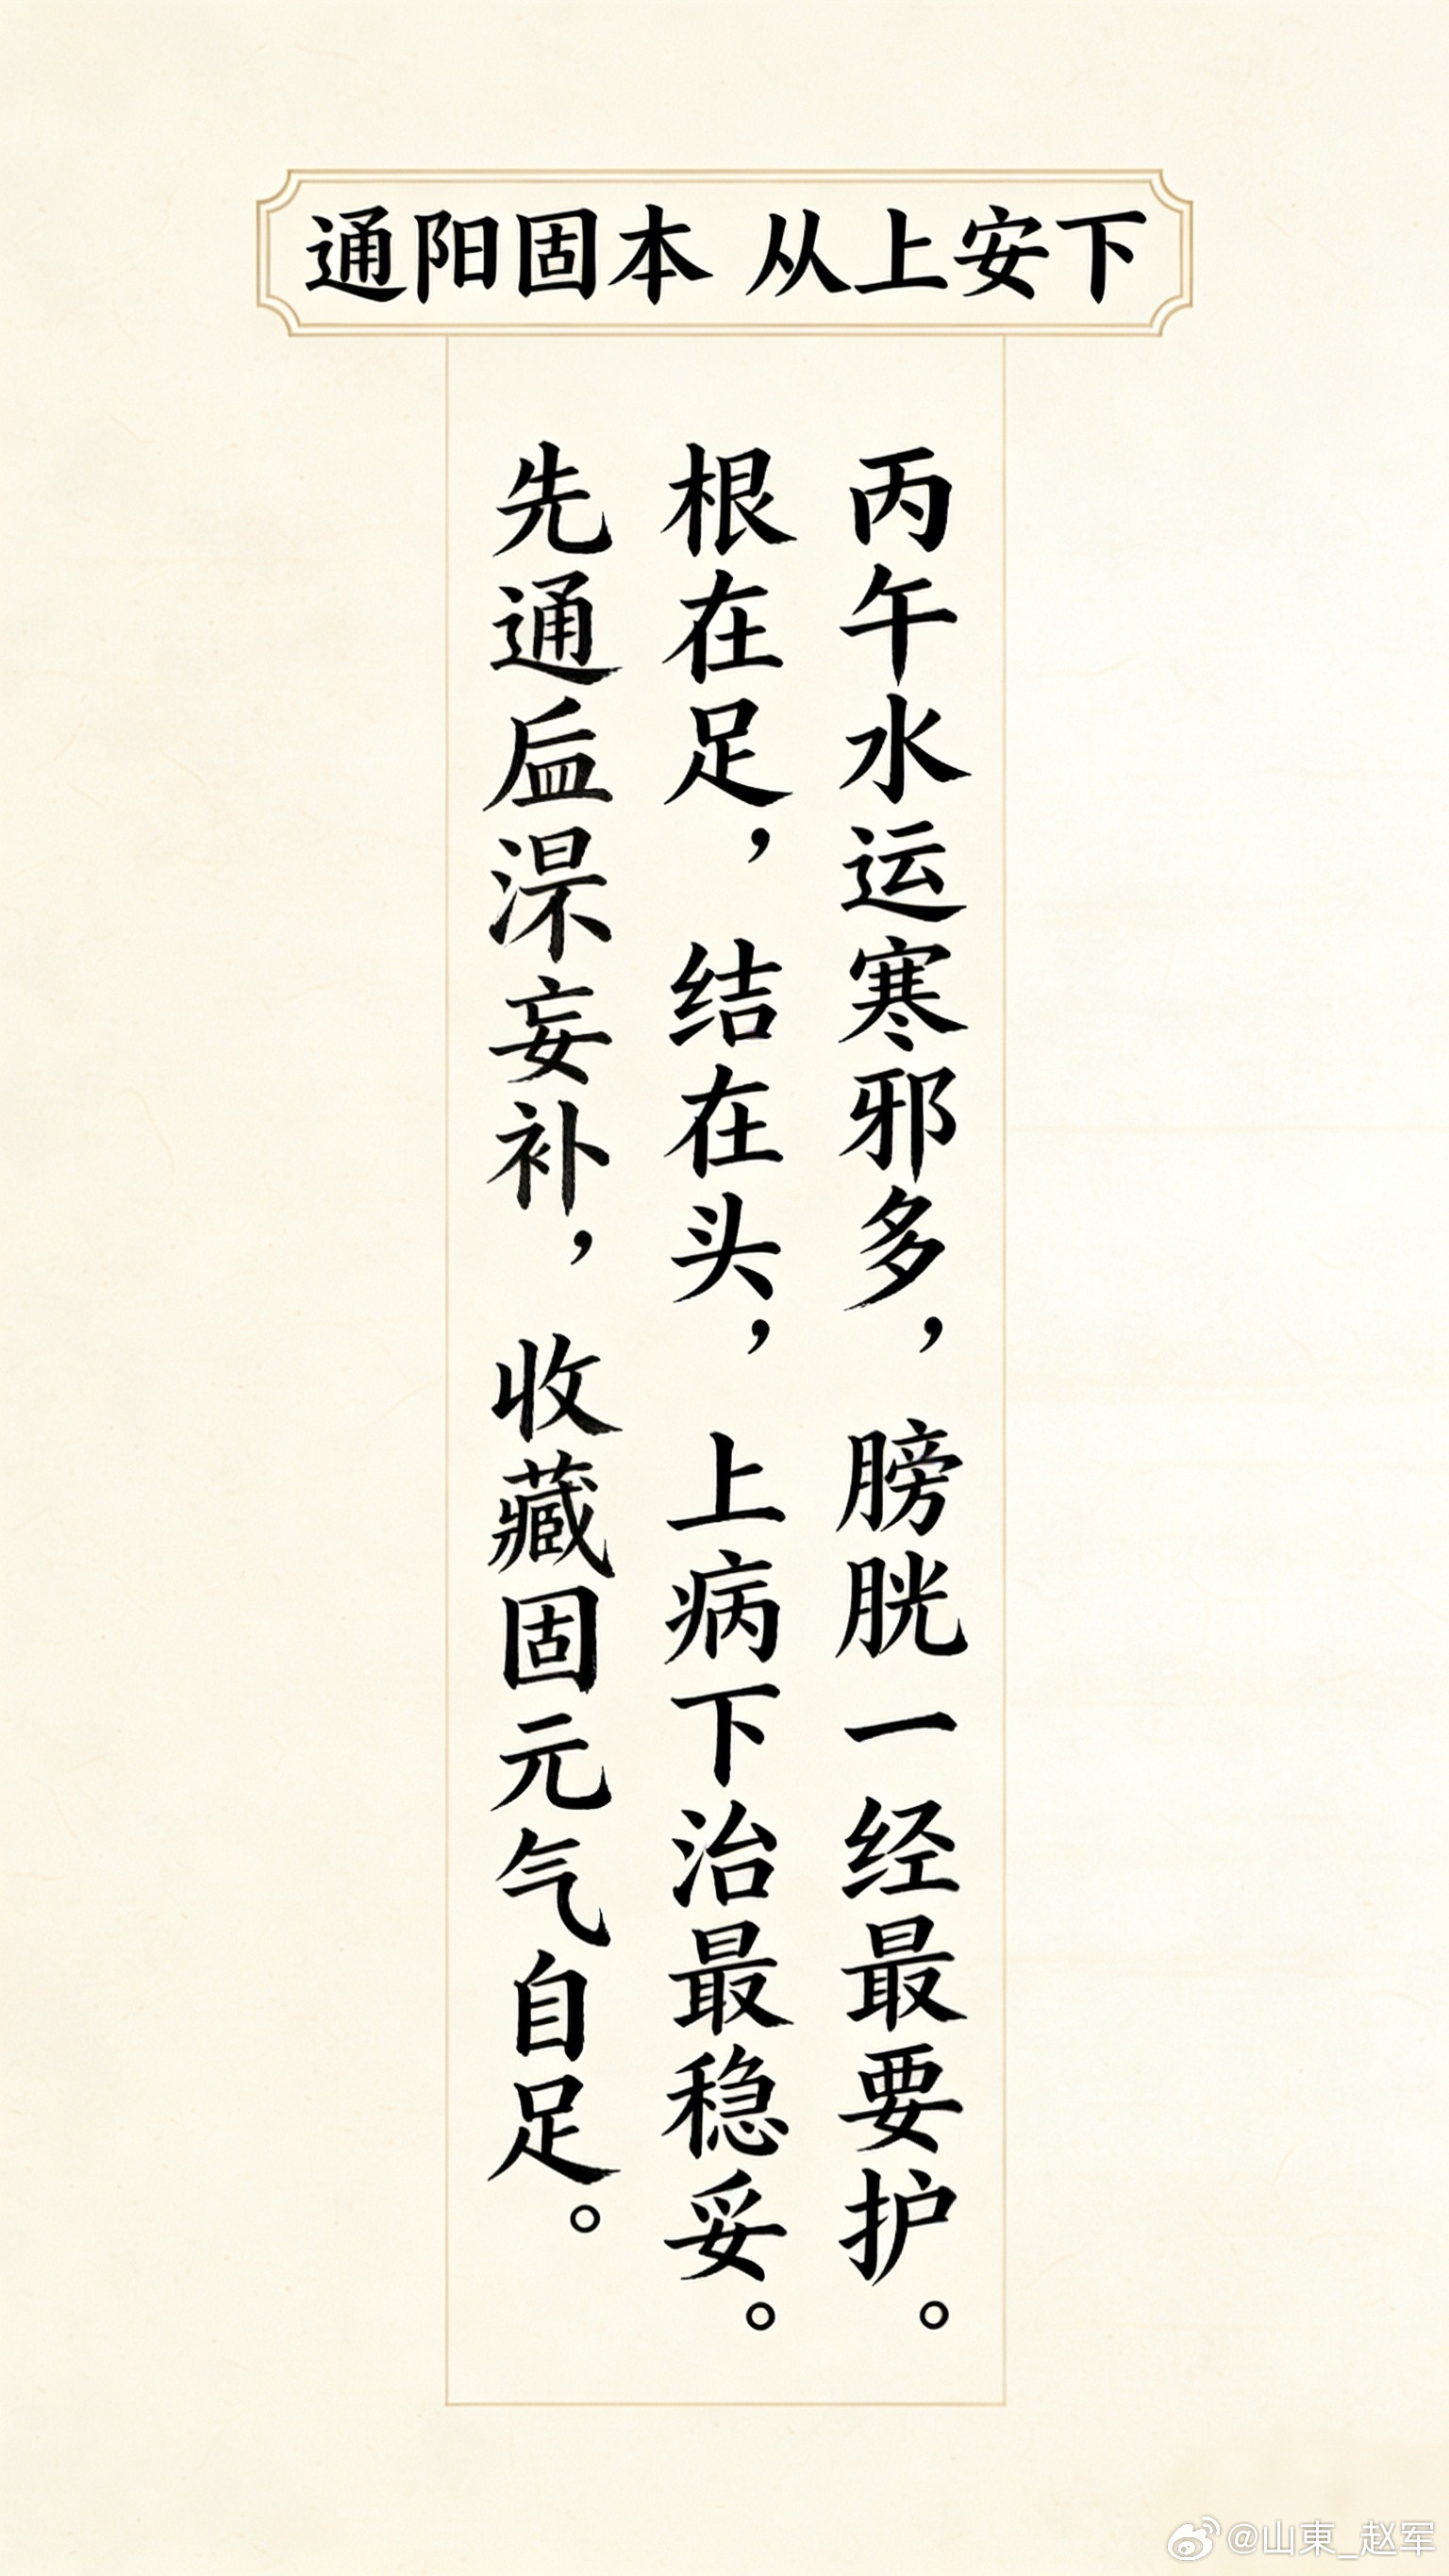 通阳固本 从上安下
丙午水运寒邪多，膀胱一经最要护。
根在足，结在头，上病下治最稳妥。
先通妄补，收藏固元气自足。
@山東_赵军